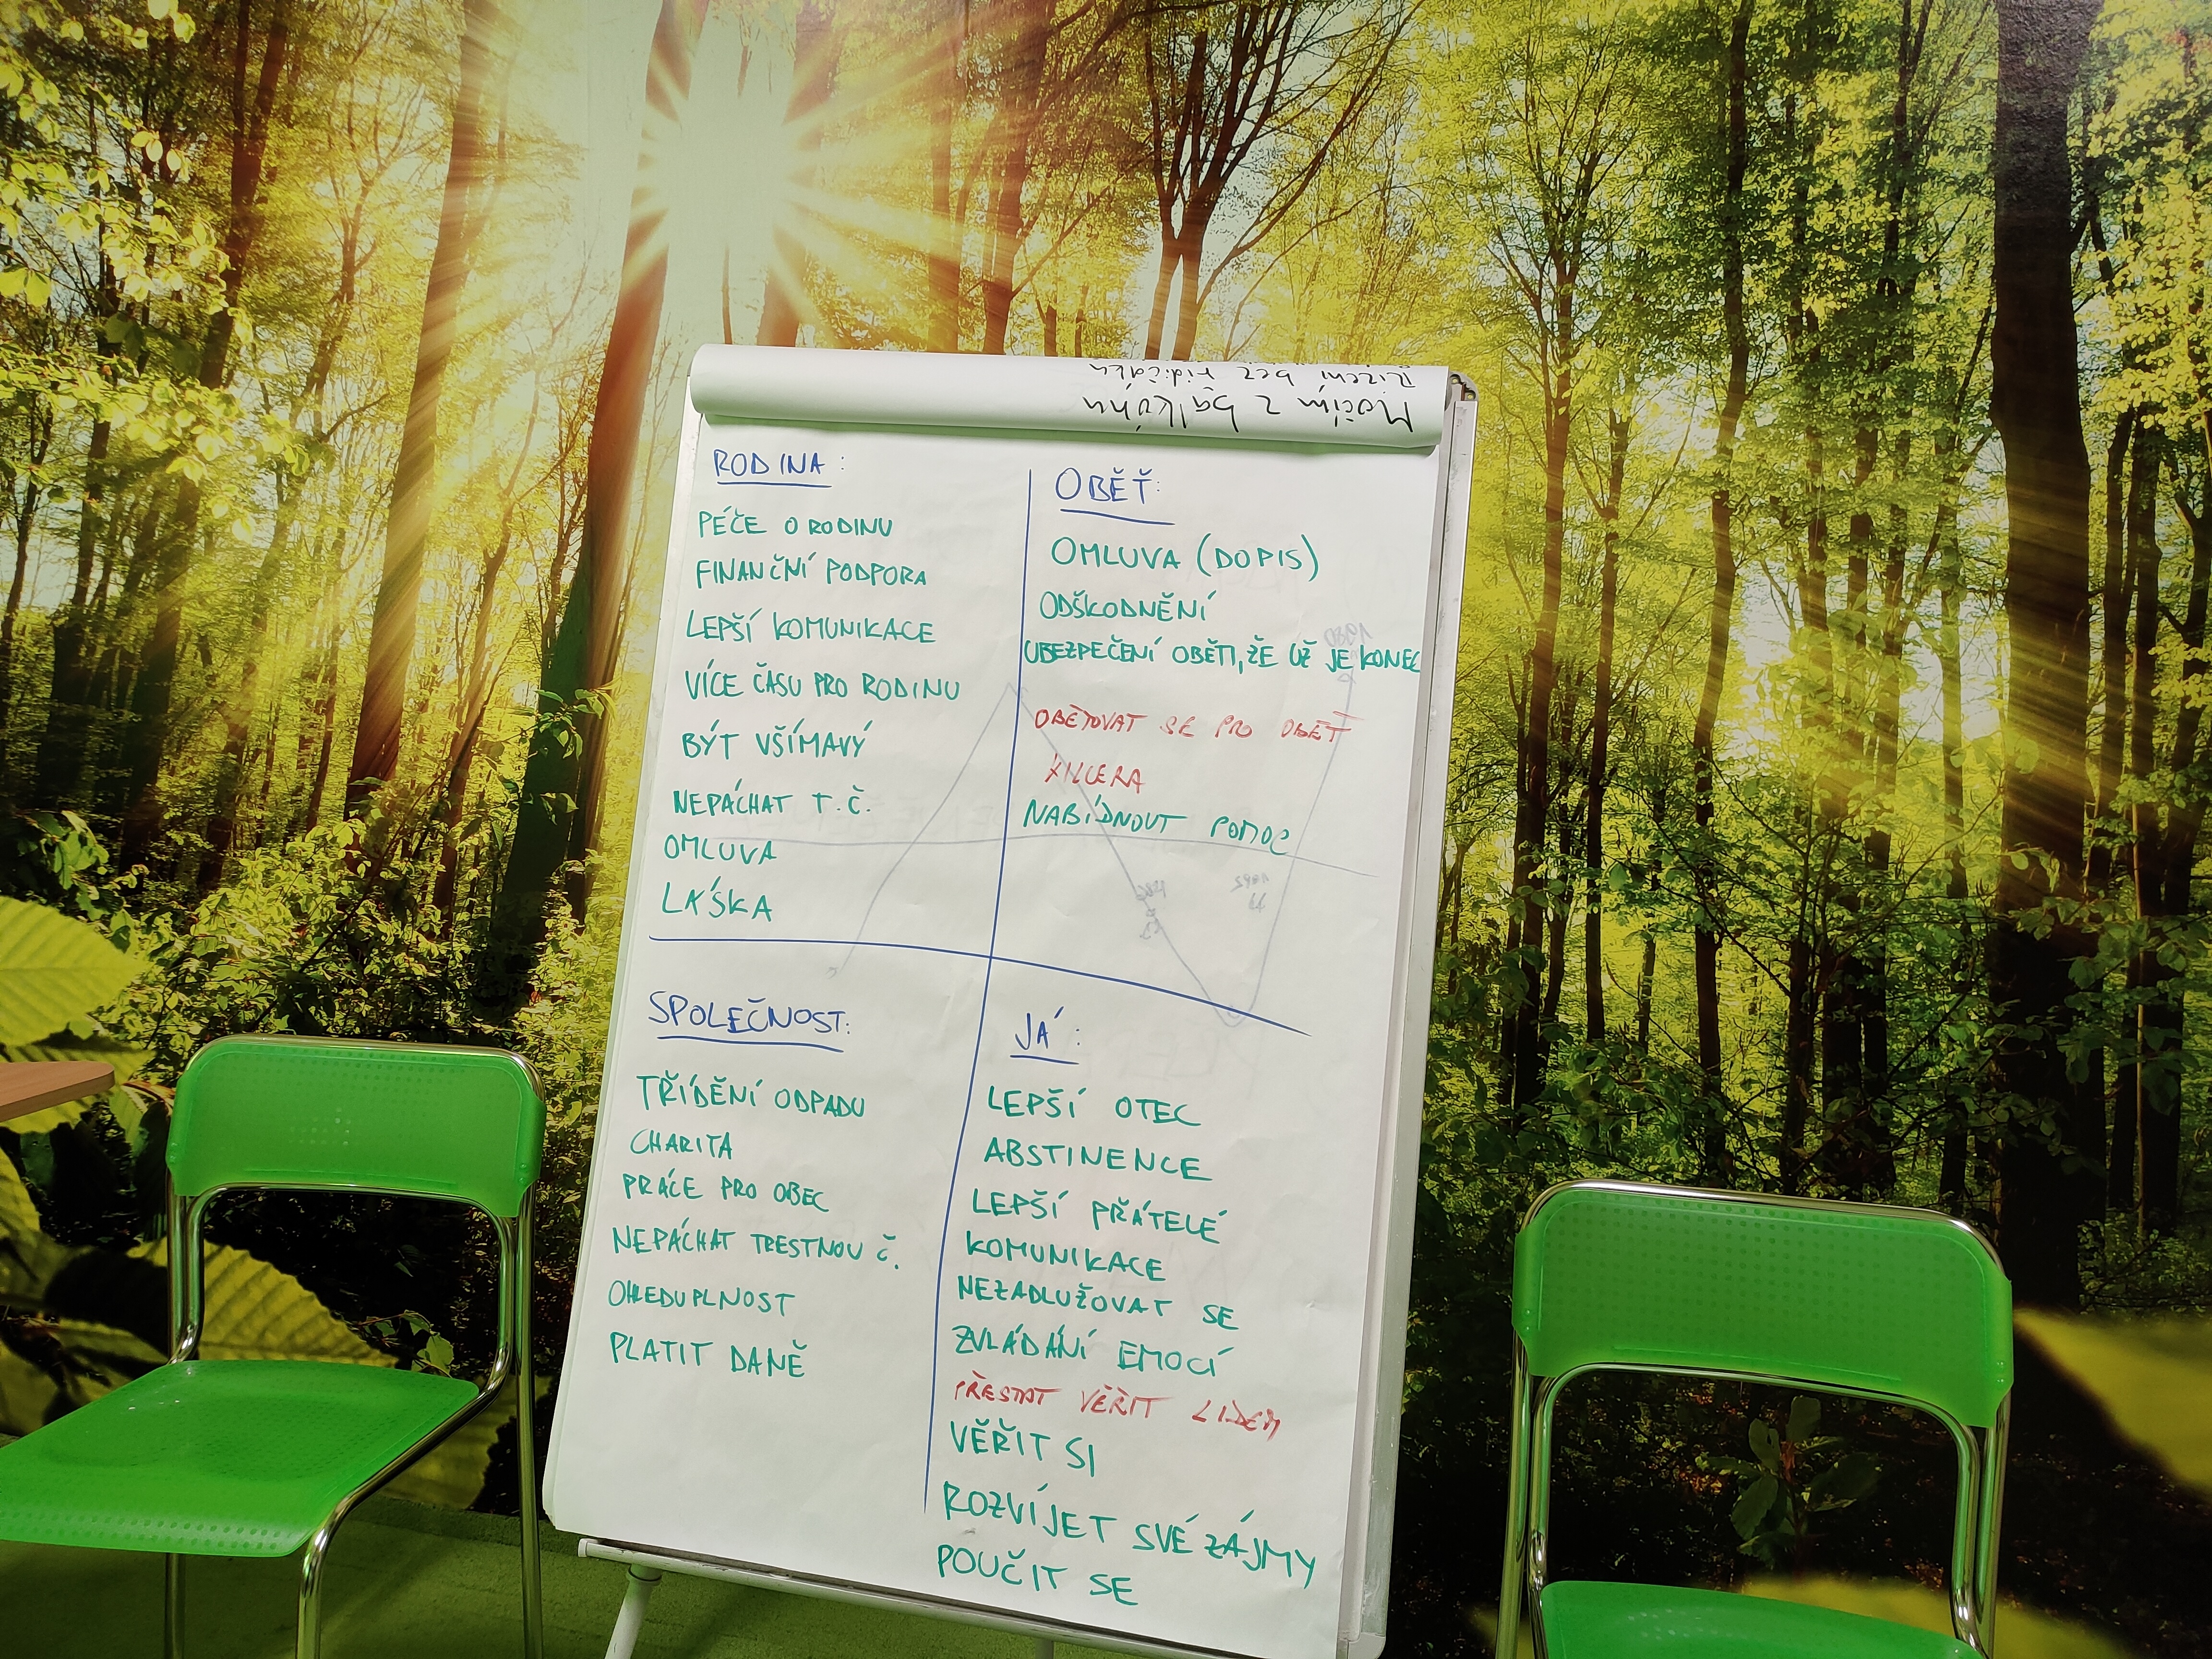 Řízení bez řidičáku
Močím z balkónu
RODINA:
PÉČE O RODINU
FINANČNÍ PODPORA
LEPŠÍ KOMUNIKACE
VÍCE ČASU PRO RODINU
BÝT VŠÍMAVÝ
NEPÁCHAT T.Č.
OMLUVA
LÁSKA
OBĚŤ:
OMLUVA (DOPIS)
ODŠKODNĚNÍ
UBEZPEČENÍ OBĚTI, ŽE UŽ JE KONEC
OBĚTOVAT SE PRO OBĚŤ
NABÍDNOUT POMOC
SPOLEČNOST:
TŘÍDĚNÍ ODPADU
CHARITA
PRÁCE PRO OBEC
NEPÁCHAT TRESTNOU Č.
OHLEDUPLNOST
PLATIT DANĚ
JÁ:
LEPŠÍ OTEC
ABSTINENCE
LEPŠÍ PŘÁTELÉ
KOMUNIKACE
NEZADLUŽOVAT SE
ZVLÁDÁNÍ EMOCÍ
PŘESTAT VĚŘIT LIDEM
VĚŘIT SI
ROZVÍJET SVÉ ZÁJMY
POUČIT SE